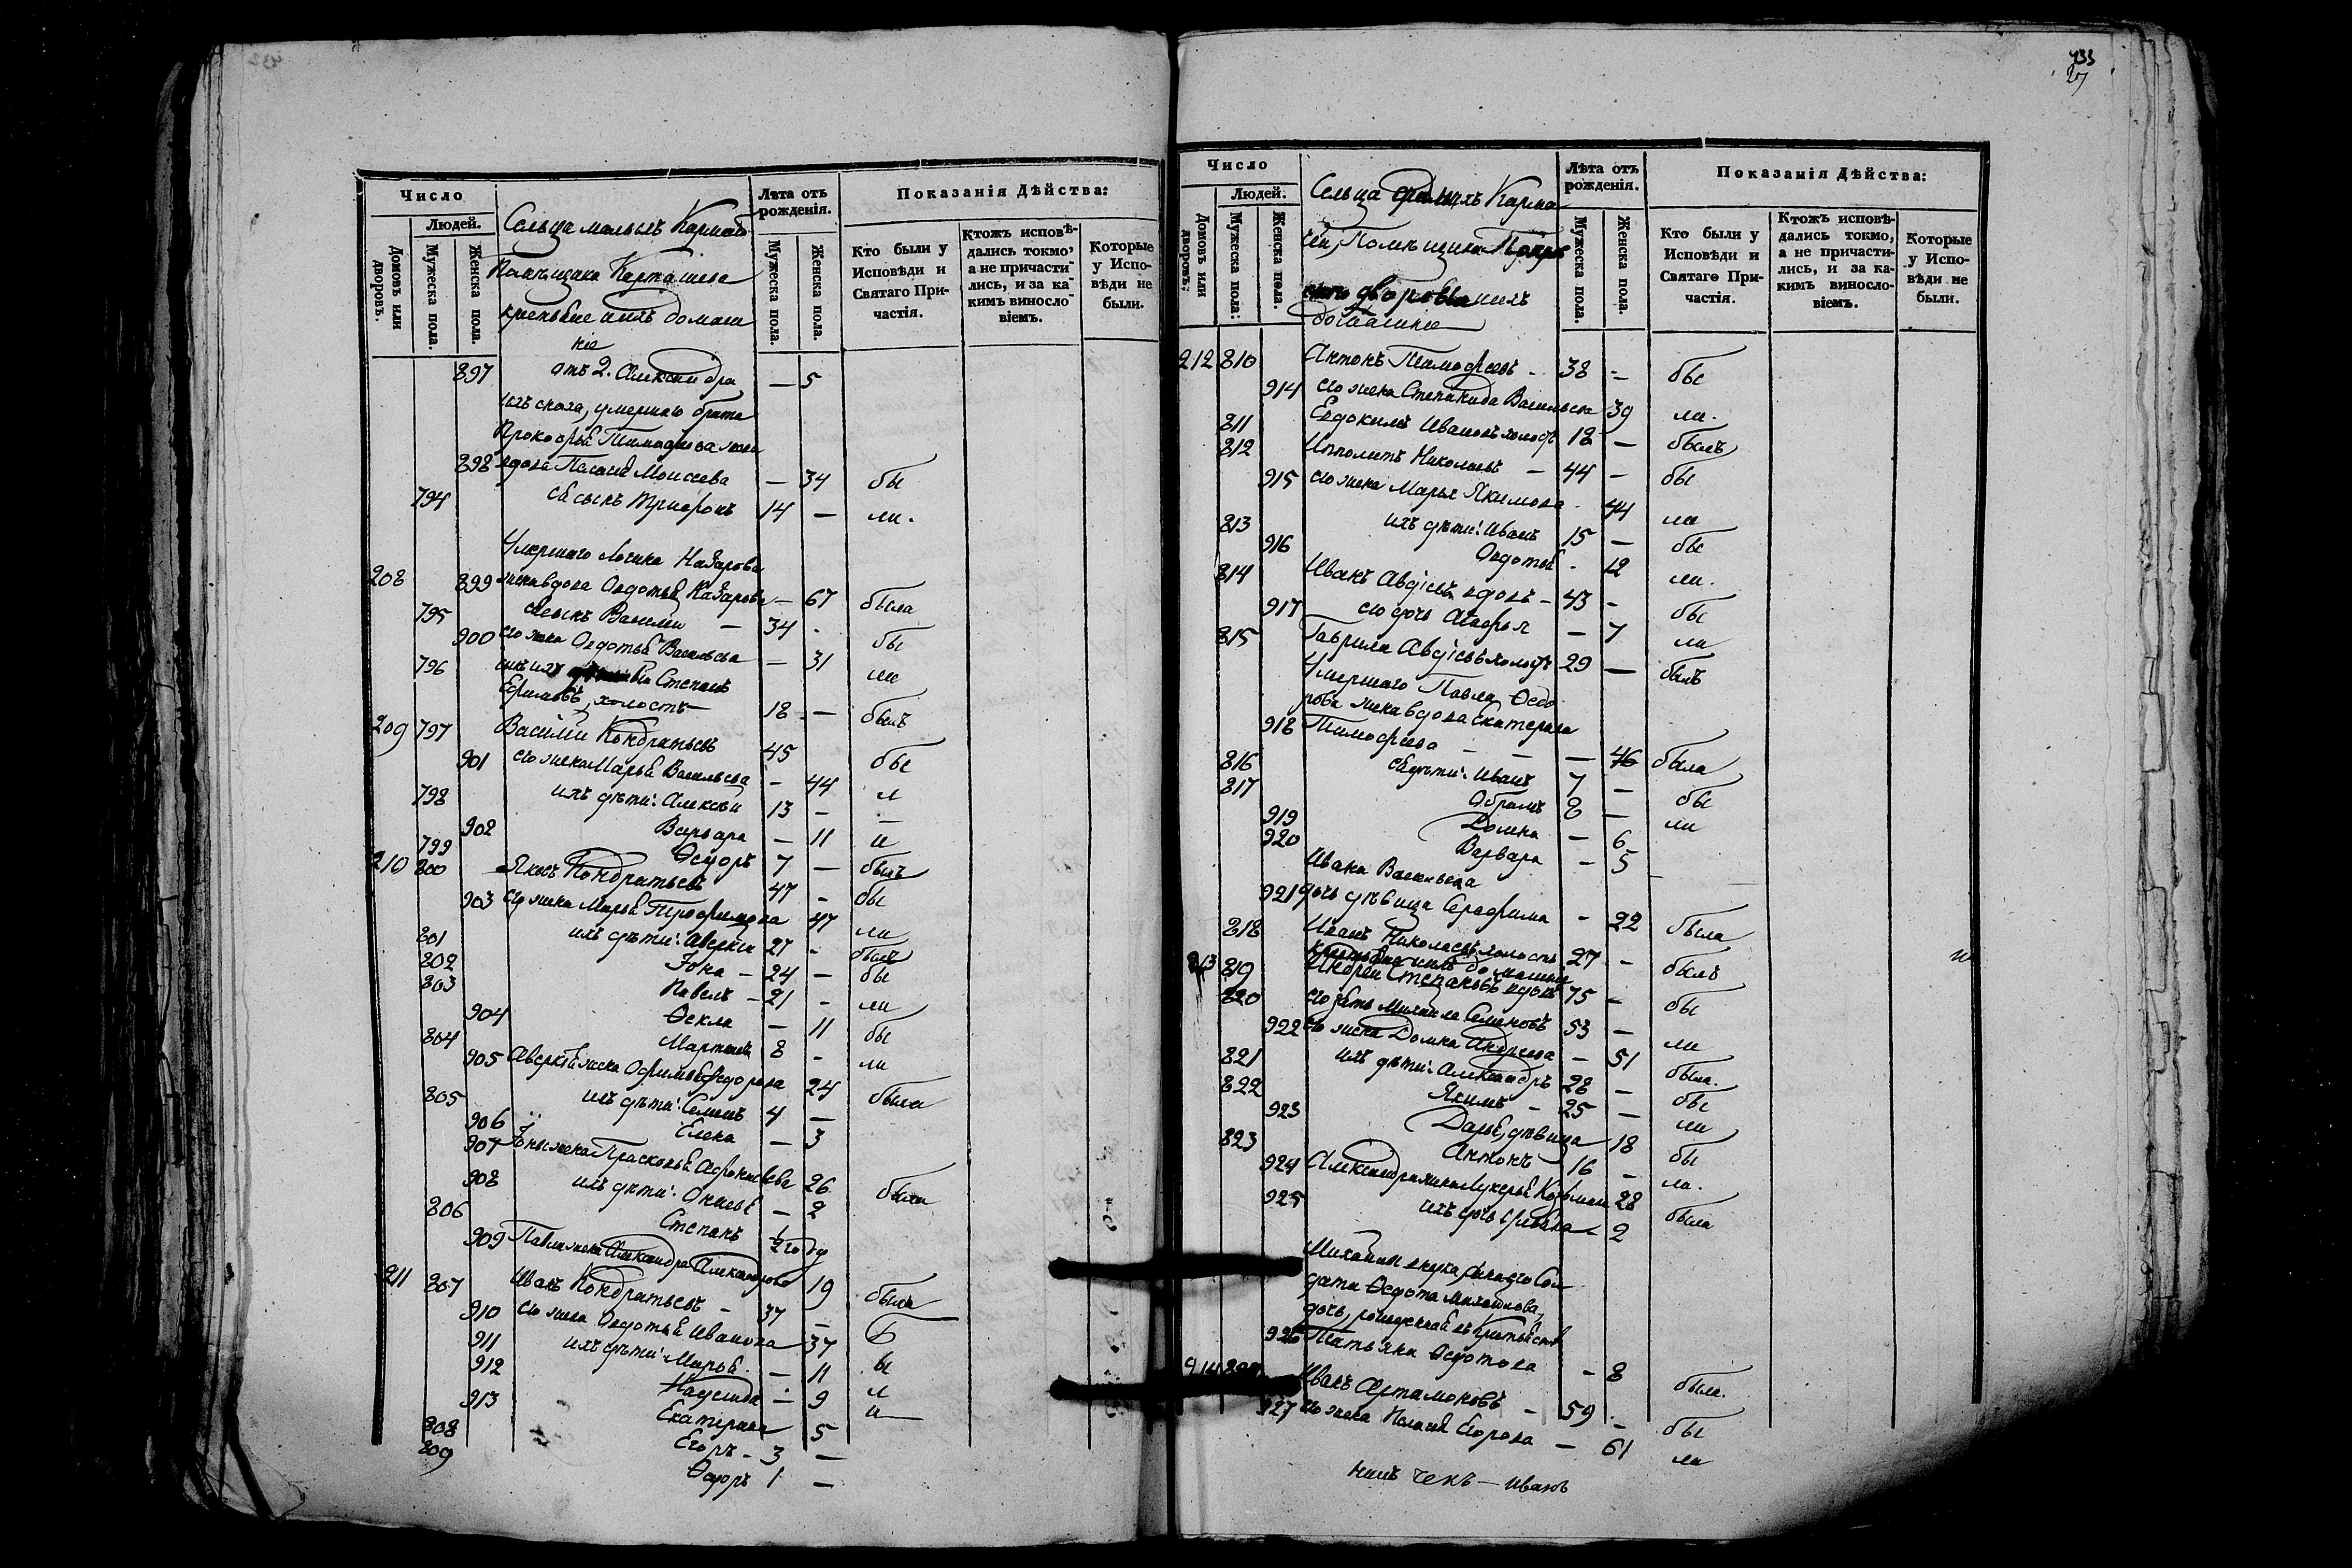 433
27
Число
Людей.
Домовъ или дворовъ.
Мужеска пола.
Женска пола.
Лѣта отъ рожденія.
Мужеска пола.
Женска пола.
Показанія Дѣйства:
Кто были у Исповѣди и Святаго Причастія.
Ктожъ исповѣдались токмо, а не причастились, и за какимъ винословіемъ.
Которые у Исповѣди не были.
Сельца малыхъ
Помѣщика Карташева
домаш
нiе
897 отъ 2. Александра — 5
ихъ сноха, умершаго брата
Прокофья Тимофеева жена
898 вдова Моисеева — 34 бы
794 ея сынъ Трифонъ 14 — ли.
Умершаго Логина Назарова
208 899 жена вдова Овдотья Назарова — 67 была
795 ея сынъ Василiй — 34 - бы
900 его жена Овдотья Васильева — 31 ли
796 Степанъ
Ефимовъ, холостъ 18 — былъ
209 797 Василiй Кондратьевъ 45 бы
901 его жена Марья Васильева - 44 л
798 ихъ дѣти: Алексѣй 13 - и
902 Варвара — 11 и
799 Ѳедоръ 7 — былъ
210 800 Яковъ Кондратьевъ 47 - бы
903 его жена Марья Трофимова 47 ли
801 ихъ дѣти: Аверкiй 27 - былъ
802 Iона — 24 — бы
803 Павелъ — 21 - ли
904 Ѳекла — 11 бы
804 Мартынъ 8 - ли
905 Аверкiя жена Офимья Ѳедорова 24 была
805 ихъ дѣти: Семенъ 4 —
906 Елена — 3
907 Iоны жена Прасковья Афонасьева 26 была
908 ихъ дѣти: — 2
806 Степанъ ½ году
909 Павла жена Александра Александрова 19 была
211 807 Иванъ Кондратьевъ — 37 — Б
910 его жена Овдотья Иванова 37 ы
911 ихъ дѣти: Марья — 11 л
912 Надежда — 9 и
913 Екатерина 5
808 Егоръ - 3 —
809 Ѳедоръ 1 —
Число
Людей.
Домовъ или дворовъ:
Мужеска пола:
Женска пола.
Лѣта отъ рожденія.
Мужеска пола.
Женска пола.
Показанія Дѣйства:
Кто были у Исповѣди и Святаго Причастія.
Ктожъ исповѣдались токмо, а не причастились, и за какимъ винословіемъ.
Которые у Исповѣди не были.
Сельца
Помѣщика
212 810 Антонъ Тимофеевъ - 38 - бы
914 его жена Степанида Васильева 39 ли.
811 Евдокимъ Ивановъ холостъ 18 — былъ
812 Ипполитъ Николаевъ — 44 - бы
915 его жена Марья Якимова 44 ли
813 ихъ дѣти: Иванъ 15 — бы
916 Овдотья - 12 ли.
814 Иванъ Авдiевъ вдовъ - 43 - бы
917 его дочь Агафья — 7 ли
815 Гаврила Авдiевъ холостъ 29 — былъ
Умершаго Павла Ѳедо
рова жена вдова Екатерина
918 Тимофеева — 46 была
816 ея дѣти: Иванъ 7 — бы
817 Абрамъ 8 — ли
919 Домна — 6
920 Варвара - 5
Ивана Васильева
921 дочь дѣвица Серафима - 22 была
818 Иванъ Николаевъ холостъ 27 - былъ
213 819 Андрей Степановъ вдовъ 75 - бы
820 его зять Михайла Семеновъ 53 — ли
922 его жена Домна Андреева - 51 была.
821 ихъ дѣти: Александръ 28 — бы
822 Якимъ - 25 — ли
923 Дарья, дѣвица 18 бы
823 Антонъ 16 - ли.
924 Александра жена Лукерья Козьмина 28 была
925 ихъ дочь - 2
Михайлы внука
Ѳедота Михайлова,
дочь, рожденная
926 Татьяна Ѳедотова - 8 была.
Иванъ Артамоновъ — 59 - бы
927 его жена Егорова — 61 ли
Иванъ